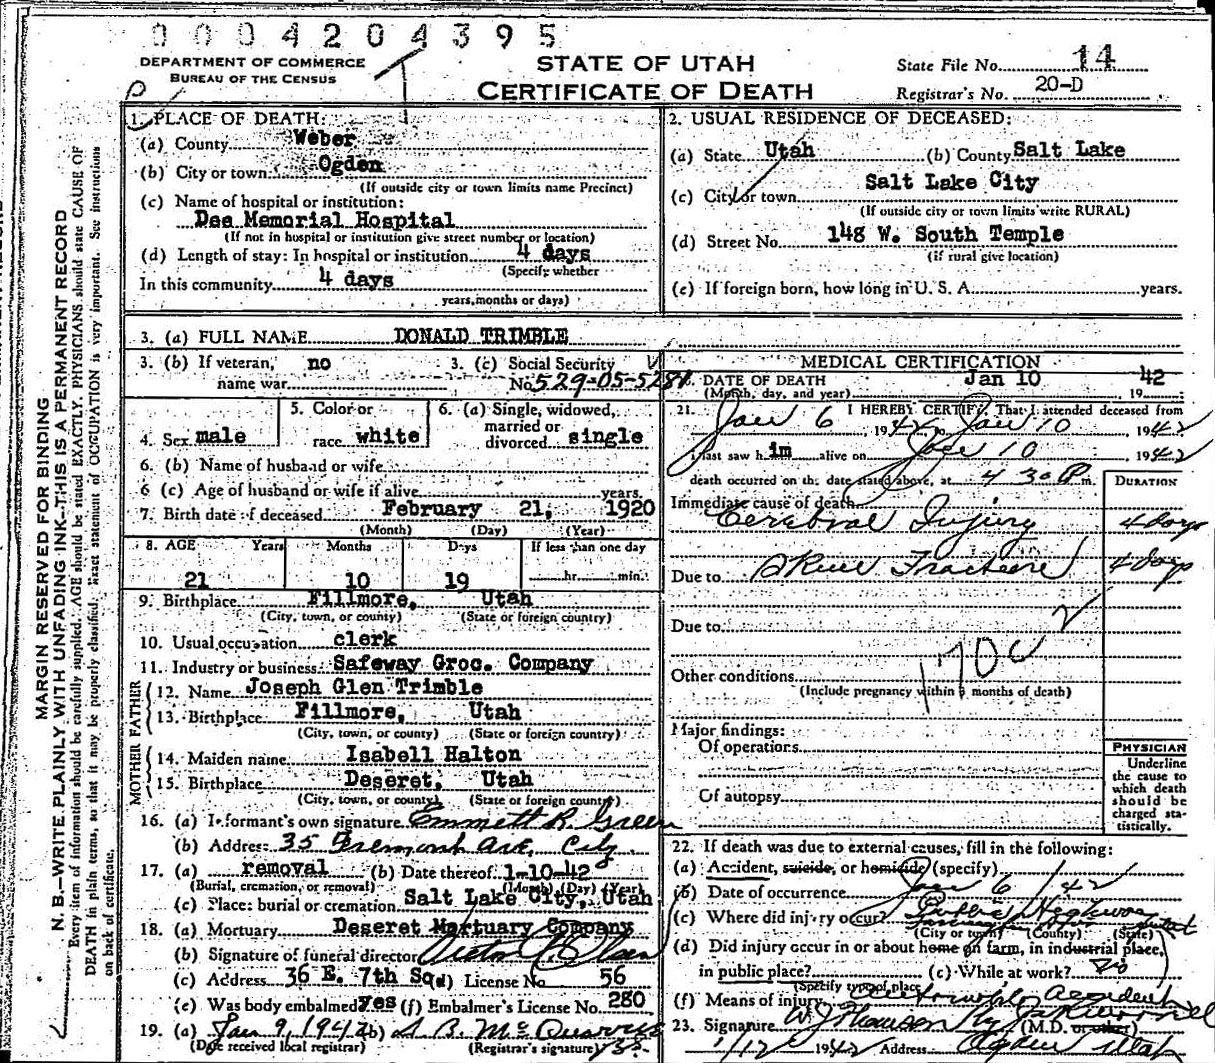 0004204395
DEPARTMENT OF COMMERCE
BUREAU OF THE CENSUS
STATE OF UTAH
CERTIFICATE OF DEATH
State File No. 14
Registrar's No. 20-D
MARGIN RESERVED FOR BINDING
N. B.—WRITE PLAINLY WITH UNFADING INK—THIS IS A PERMANENT RECORD
Every item of information should be carefully supplied. AGE should be stated EXACTLY. PHYSICIANS should state CAUSE OF
DEATH in plain terms, so that it may be properly classified. Exact statement of OCCUPATION is very important. See instructions
on back of certificate.
1. PLACE OF DEATH:
(a) County Weber
(b) City or town Ogden
(If outside city or town limits name Precinct)
(c) Name of hospital or institution:
Dee Memorial Hospital
(If not in hospital or institution give street number or location)
(d) Length of stay: In hospital or institution 4 days
(Specify whether
In this community 4 days
years, months or days)
2. USUAL RESIDENCE OF DECEASED:
(a) State Utah (b) County Salt Lake
(c) City or town Salt Lake City
(If outside city or town limits write RURAL)
(d) Street No. 148 W. South Temple
(if rural give location)
(e) If foreign born, how long in U. S. A. years.
3. (a) FULL NAME DONALD TRIMBLE
3. (b) If veteran, no
name war
3. (c) Social Security
No. 529-05-5281
4. Sex male
5. Color or
race white
6. (a) Single, widowed,
married or
divorced single
6. (b) Name of husband or wife
6 (c) Age of husband or wife if alive years.
7. Birth date of deceased February 21, 1920
(Month) (Day) (Year)
8. AGE Years Months Days If less than one day
21 10 19 hr. min.
9. Birthplace Fillmore, Utah
(City, town, or county) (State or foreign country)
10. Usual occupation clerk
11. Industry or business Safeway Groc. Company
FATHER
12. Name Joseph Glen Trimble
13. Birthplace Fillmore, Utah
(City, town, or county) (State or foreign country)
MOTHER
14. Maiden name Isabell Halton
15. Birthplace Deseret, Utah
(City, town, or county) (State or foreign country)
16. (a) Informant's own signature Emmett R. Green
(b) Address 35 Fremont Ave, City
17. (a) removal (b) Date thereof 1-10-42
(Burial, cremation, or removal) (Month) (Day) (Year)
(c) Place: burial or cremation Salt Lake City, Utah
18. (a) Mortuary Deseret Mortuary Company
(b) Signature of funeral director
(c) Address 36 E. 7th So. (d) License No 56
(e) Was body embalmed yes (f) Embalmer's License No. 280
19. (a) Jan 9, 1942 (b)
(Date received local registrar) (Registrar's signature)
MEDICAL CERTIFICATION
DATE OF DEATH Jan 10 42
(Month, day, and year) , 19
21. I HEREBY CERTIFY, That I attended deceased from
Jan 6, 1942, to Jan 10, 1942
I last saw him alive on Jan 10, 1942
death occurred on the date stated above, at 4 30 P m.
DURATION
Immediate cause of death
Cerebral Injury 4 days
Due to Skull Fracture 4 days
Due to
2
170c
Other conditions
(Include pregnancy within 3 months of death)
Major findings:
Of operations
Of autopsy
PHYSICIAN
Underline
the cause to
which death
should be
charged sta-
tistically.
22. If death was due to external causes, fill in the following:
(a) Accident, suicide, or homicide (specify)
(b) Date of occurrence Jan 6 / 42
(c) Where did injury occur? Public Highway
(City or town) (County) (State)
(d) Did injury occur in or about home on farm, in industrial place,
in public place? (e) While at work? No
(Specify type of place)
(f) Means of injury Automobile Accident
23. Signature (M.D. or other)
1/12 1942 Address Ogden Utah